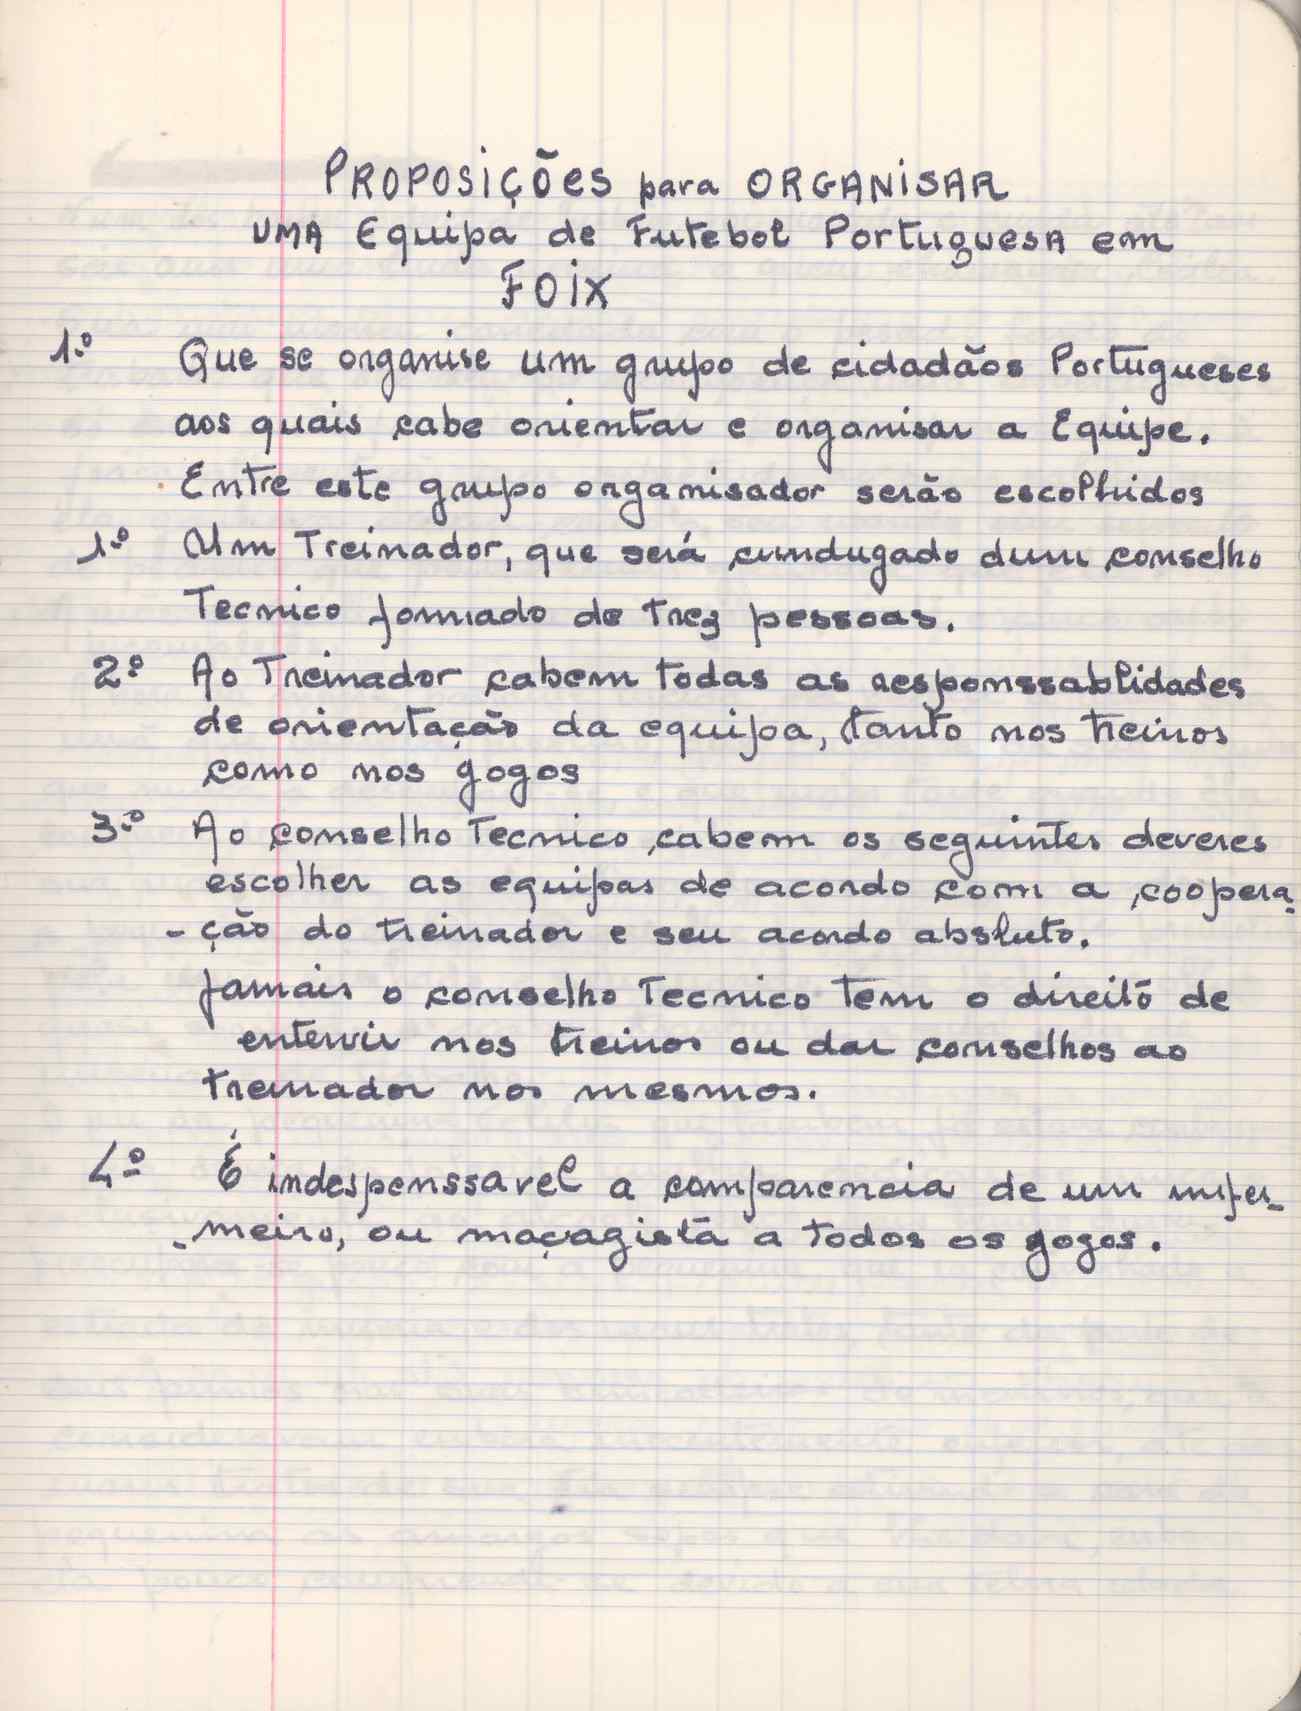 PROPOSIÇÕES para ORGANISAR
UMA Equipa de Futebol Portuguesa em
FOIX
1.º Que se organise um grupo de cidadãos Portugueses
aos quais cabe orientar e organisar a Equipe.
Entre este grupo organisador serão escolhidos
1.º Um Treinador, que será cundugado dum conselho
Tecnico formado de tres pessoas.
2.º Ao Treinador cabem todas as responssablidades
de orientação da equipa, tanto nos treinos
como nos gogos
3.º Ao conselho Tecnico cabem os seguintes deveres
escolher as equipas de acordo com a coopera-
-ção do treinador e seu acordo absluto.
Jamais o conselho Tecnico tem o direitó de
entervir nos treinos ou dar conselhos ao
treinador nos mesmos.
4.º É indespenssavel a comparencia de um infer-
-meiro, ou maçagistá a todos os gogos.